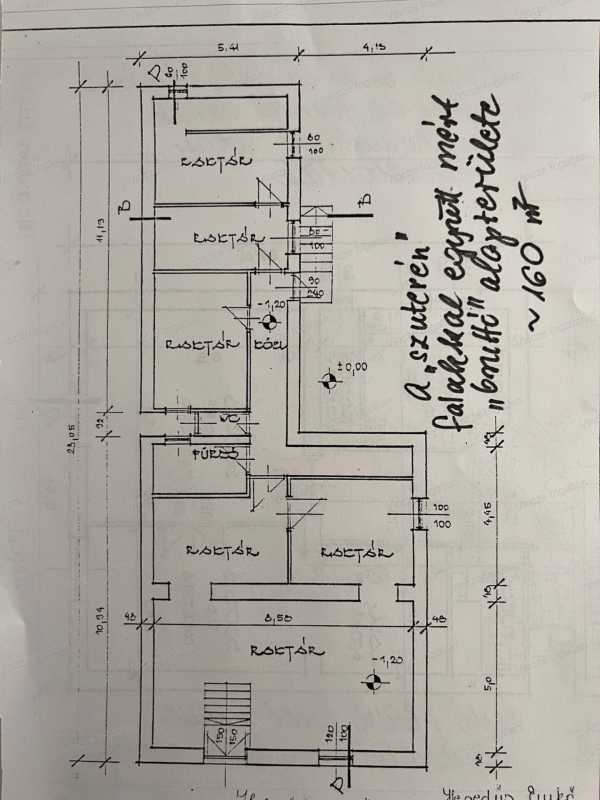 5,41
4,13
D
60
100
RAKTÁR
60
100
B
B
RAKTÁR
60
100
90
240
11,19
-1,20
RAKTÁR
KÖZL
±0,00
A „szuterén"
falakkal együtt mért
„bruttó" alapterülete
~160 m²
92
23,05
FÜRDŐ
4,45
100
100
RAKTÁR
RAKTÁR
48
8,58
48
RAKTÁR
-1,20
10,94
5,0
150
150
120
100
D